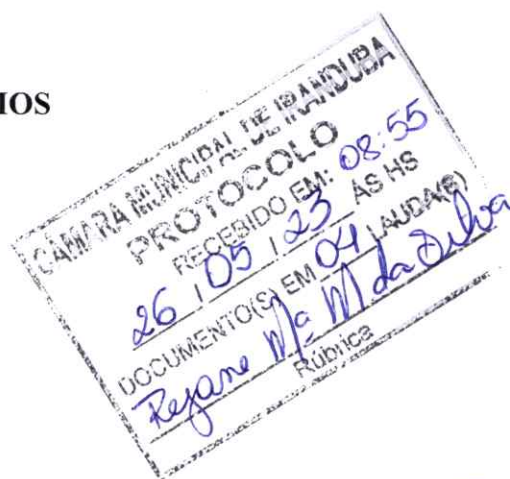 MOS
CÂMARA MUNICIPAL DE IRANDUBA
PROTOCOLO
RECEBIDO EM: 08:55
26 / 05 / 23 ÀS HS
DOCUMENTO(S) EM 04 LAUDA(S)
Rejane Mª M da Silva
Rúbrica